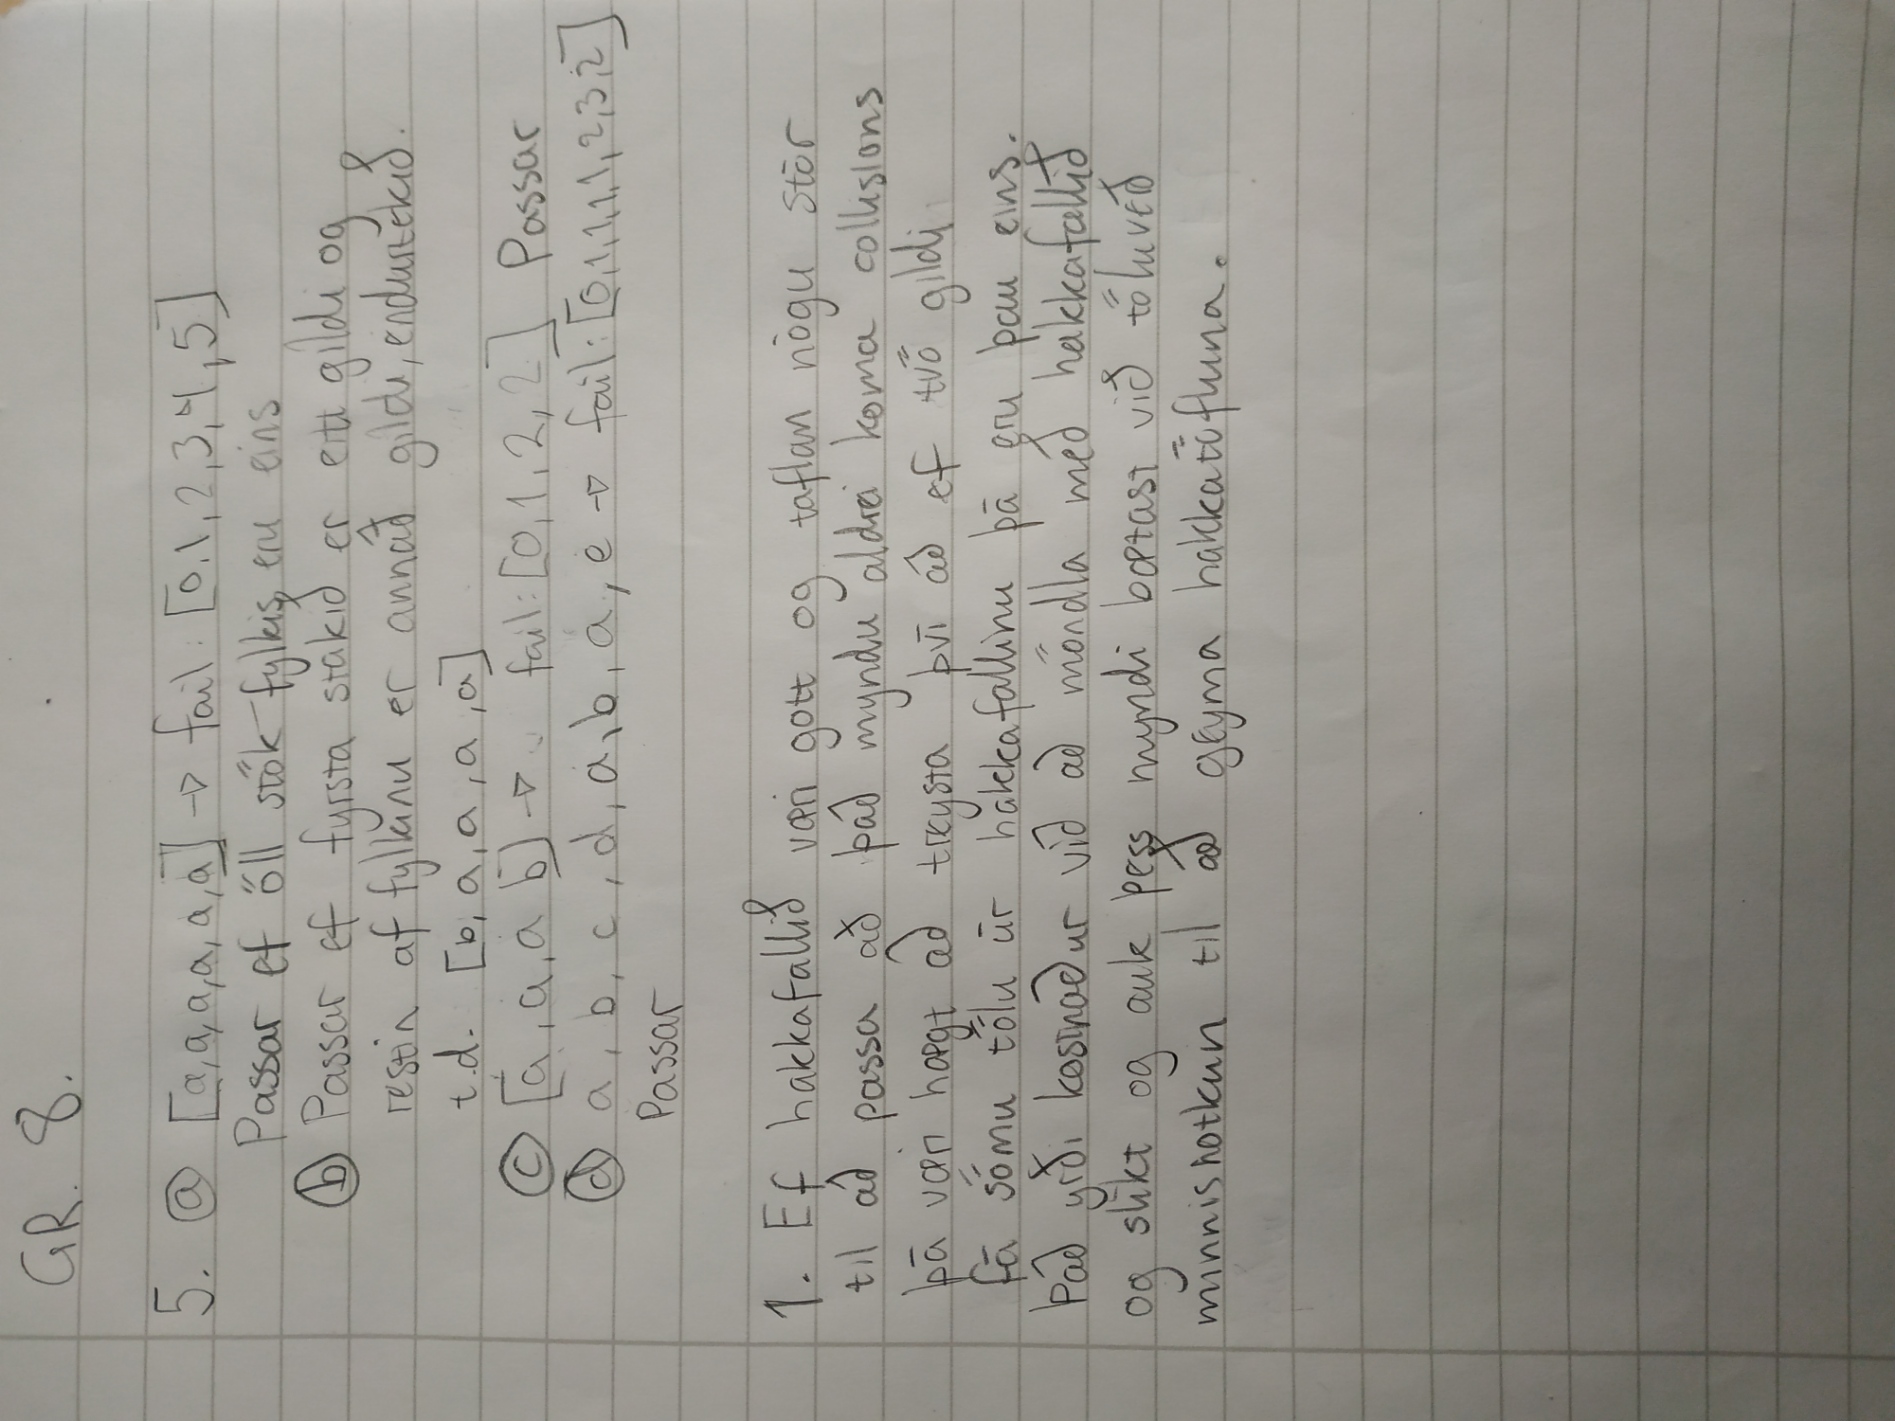 GR. 8.
5. ⓐ [a,a,a,a,a,a] → fail: [0,1,2,3,4,5]
Passar ef öll stök fylkis eru eins
ⓑ Passar ef fyrsta stakið er eitt gildi og
restin af fylkinu er annað gildi, endurtekið.
t.d. [b, a, a, a, a]
ⓒ [a, a, a b] → fail: [0,1,2,2] Passar
ⓓ a, b, c, d, a, b, a, e → fail: [0,1,1,1,1,2,3,2]
Passar
1. Ef hakkafallið væri gott og taflan nógu stór
til að passa að það myndu aldrei koma collisions
þá væri hægt að treysta því að ef tvö gildi
fá sömu tölu úr hakkafallinu þá eru þau eins.
Það yrði kostnaður við að möndla með hakkafallið
og slíkt og auk þess myndi bætast við töluverð
minnisnotkun til að geyma hakkatöfluna.